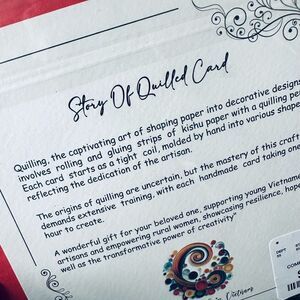 Story Of Quilled Card
Quilling, the captivating art of shaping paper into decorative designs
involves rolling and gluing strips of kishu paper with a quilling pe
Each card starts as a tight coil, molded by hand into various shape
reflecting the dedication of the artisan.
The origins of quilling are uncertain, but the mastery of this craft
demands extensive training, with each handmade card taking one
hour to create.
A wonderful gift for your beloved one, supporting young Vietnam
artisans and empowering rural women, showcasing resilience, hop
well as the transformative power of creativity"
DEPT
COM